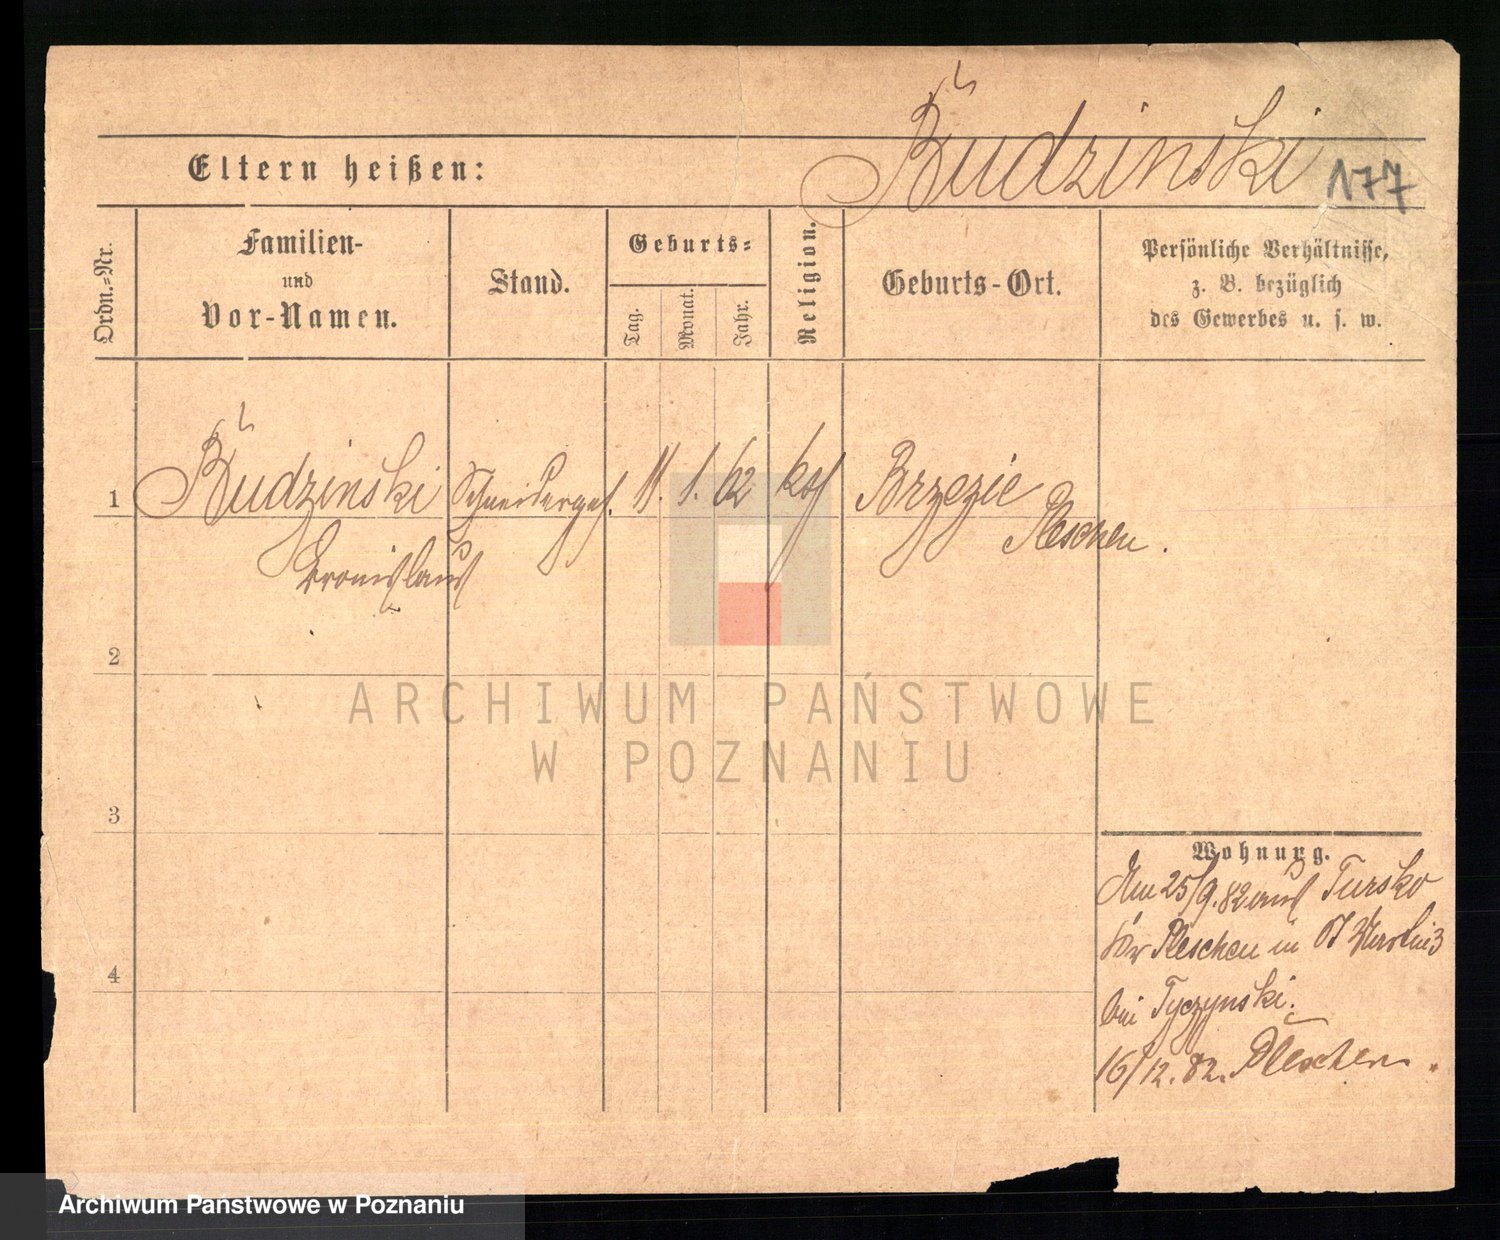 Budzinski
Eltern heißen:
177
Ordn.=Nr.
Familien-
und
Vor-Namen.
Stand.
Geburts=
Tag.
Monat.
Jahr.
Religion.
Geburts-Ort.
Persönliche Verhältnisse,
z. B. bezüglich
des Gewerbes u. s. w.
1
Budzinski
Schneiderges.
11.
1.
62
kath
Brzezie
Pleschen.
Bronislaus
2
ARCHIWUM PAŃSTWOWE
W POZNANIU
3
Wohnung.
Am 25/9.82 aus Tursko
Kr Pleschen in
bei Tyczynski.
4
16/12.82. Pleschen.
Archiwum Państwowe w Poznaniu